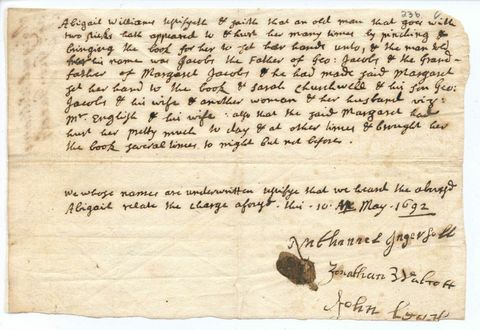 236
Abigail Williams testifyeth & saith that an old man that goes with
two sticks hath appeared to & hurt her many times by pinching &
bringing the book for her to set her hand unto, & the man told
her his name was Jacobs the Father of Geo: Jacobs & the Grand-
father of Margaret Jacobs & he had made said Margaret
set her hand to the book & Sarah Churchwell & his son Geo:
Jacobs & his wife & another woman & her husband viz:
Mr. English & his wife: also that the said Margaret had
hurt her pretty much to day & at other times & brought her
the book several times to night but not before.
We whose names are underwritten testifye that we heard the abovesd
Abigail relate the charge aforesd. this 10 May 1692
Nathanniel Ingersoll
Jonathan Walcott
John